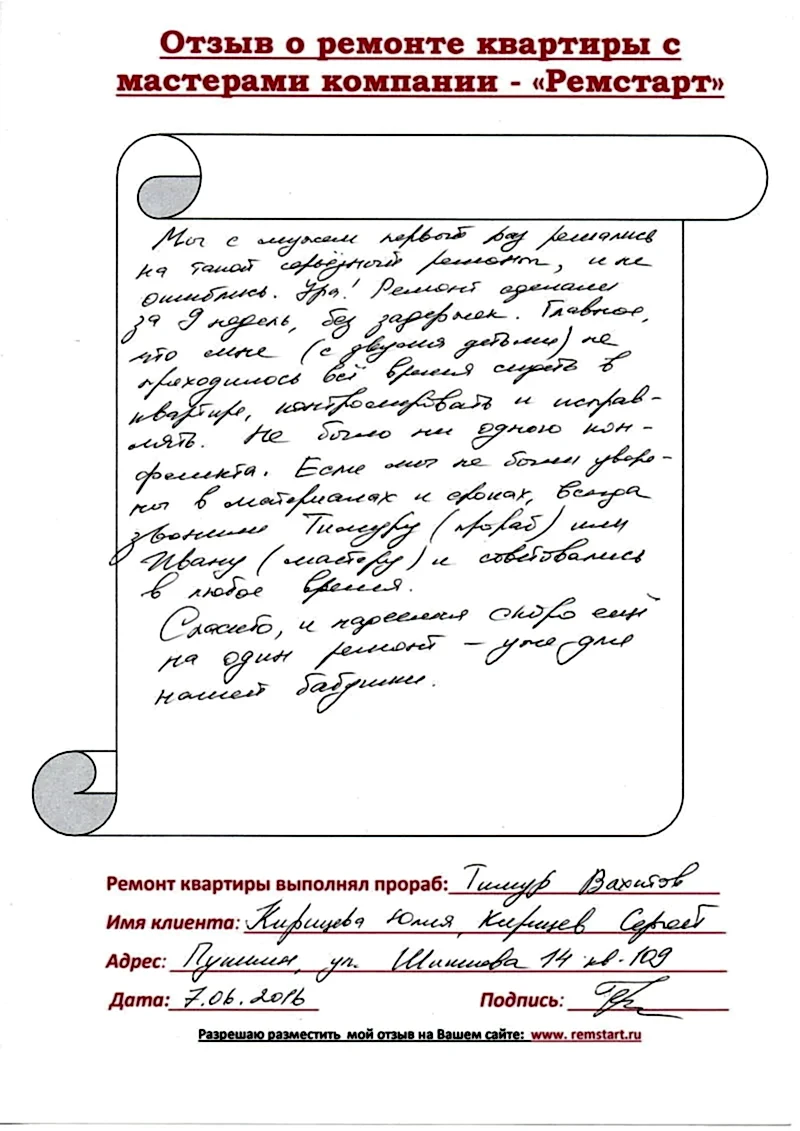 Отзыв о ремонте квартиры с
мастерами компании - «Ремстарт»
Мы с мужем первый раз решались
на такой серьёзный ремонт, и не
ошиблись. Ура! Ремонт сделали
за 9 недель, без задержек. Главное,
что мне (с двумя детьми) не
приходилось всё время сидеть в
квартире, контролировать и исправ-
лять. Не было ни одного кон-
фликта. Если мы не были увере-
ны в материалах и сроках, всегда
звонили Тимуру (прораб) или
Ивану (мастеру) и советовались
в любое время.
Спасибо, и надеемся скоро ещё
на один ремонт – уже для
нашей бабушки.
Ремонт квартиры выполнял прораб: Тимур Вахитов
Имя клиента: Кирищева Юлия, Кирищев Сергей
Адрес: Пушкин, ул. 14 кв. 109
Дата: 7.06.2016 Подпись:
Разрешаю разместить мой отзыв на Вашем сайте: www. remstart.ru